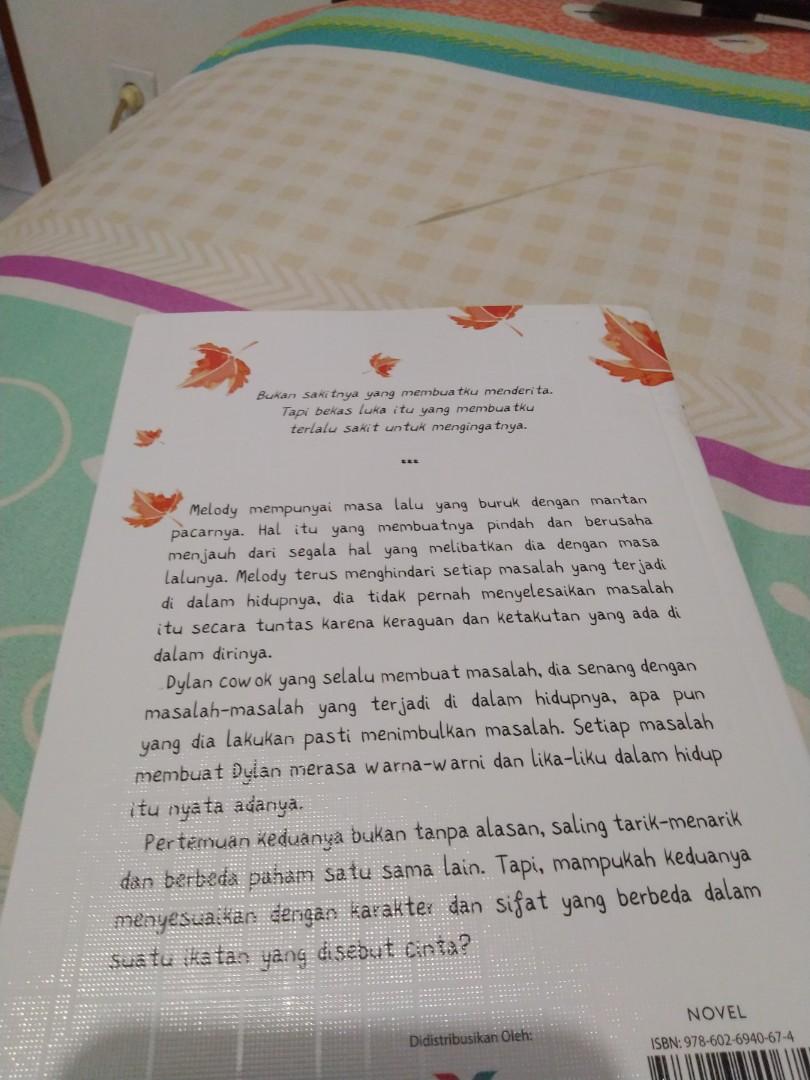 Bukan sakitnya yang membuatku menderita.
Tapi bekas luka itu yang membuatku
terlalu sakit untuk mengingatnya.
***
Melody mempunyai masa lalu yang buruk dengan mantan
pacarnya. Hal itu yang membuatnya pindah dan berusaha
menjauh dari segala hal yang melibatkan dia dengan masa
lalunya. Melody terus menghindari setiap masalah yang terjadi
di dalam hidupnya, dia tidak pernah menyelesaikan masalah
itu secara tuntas karena keraguan dan ketakutan yang ada di
dalam dirinya.
Dylan cowok yang selalu membuat masalah, dia senang dengan
masalah-masalah yang terjadi di dalam hidupnya, apa pun
yang dia lakukan pasti menimbulkan masalah. Setiap masalah
membuat Dylan merasa warna-warni dan lika-liku dalam hidup
itu nyata adanya.
Pertemuan keduanya bukan tanpa alasan, saling tarik-menarik
dan berbeda paham satu sama lain. Tapi, mampukah keduanya
menyesuaikan dengan karakter dan sifat yang berbeda dalam
suatu ikatan yang disebut cinta?
NOVEL
Didistribusikan Oleh:
ISBN: 978-602-6940-67-4